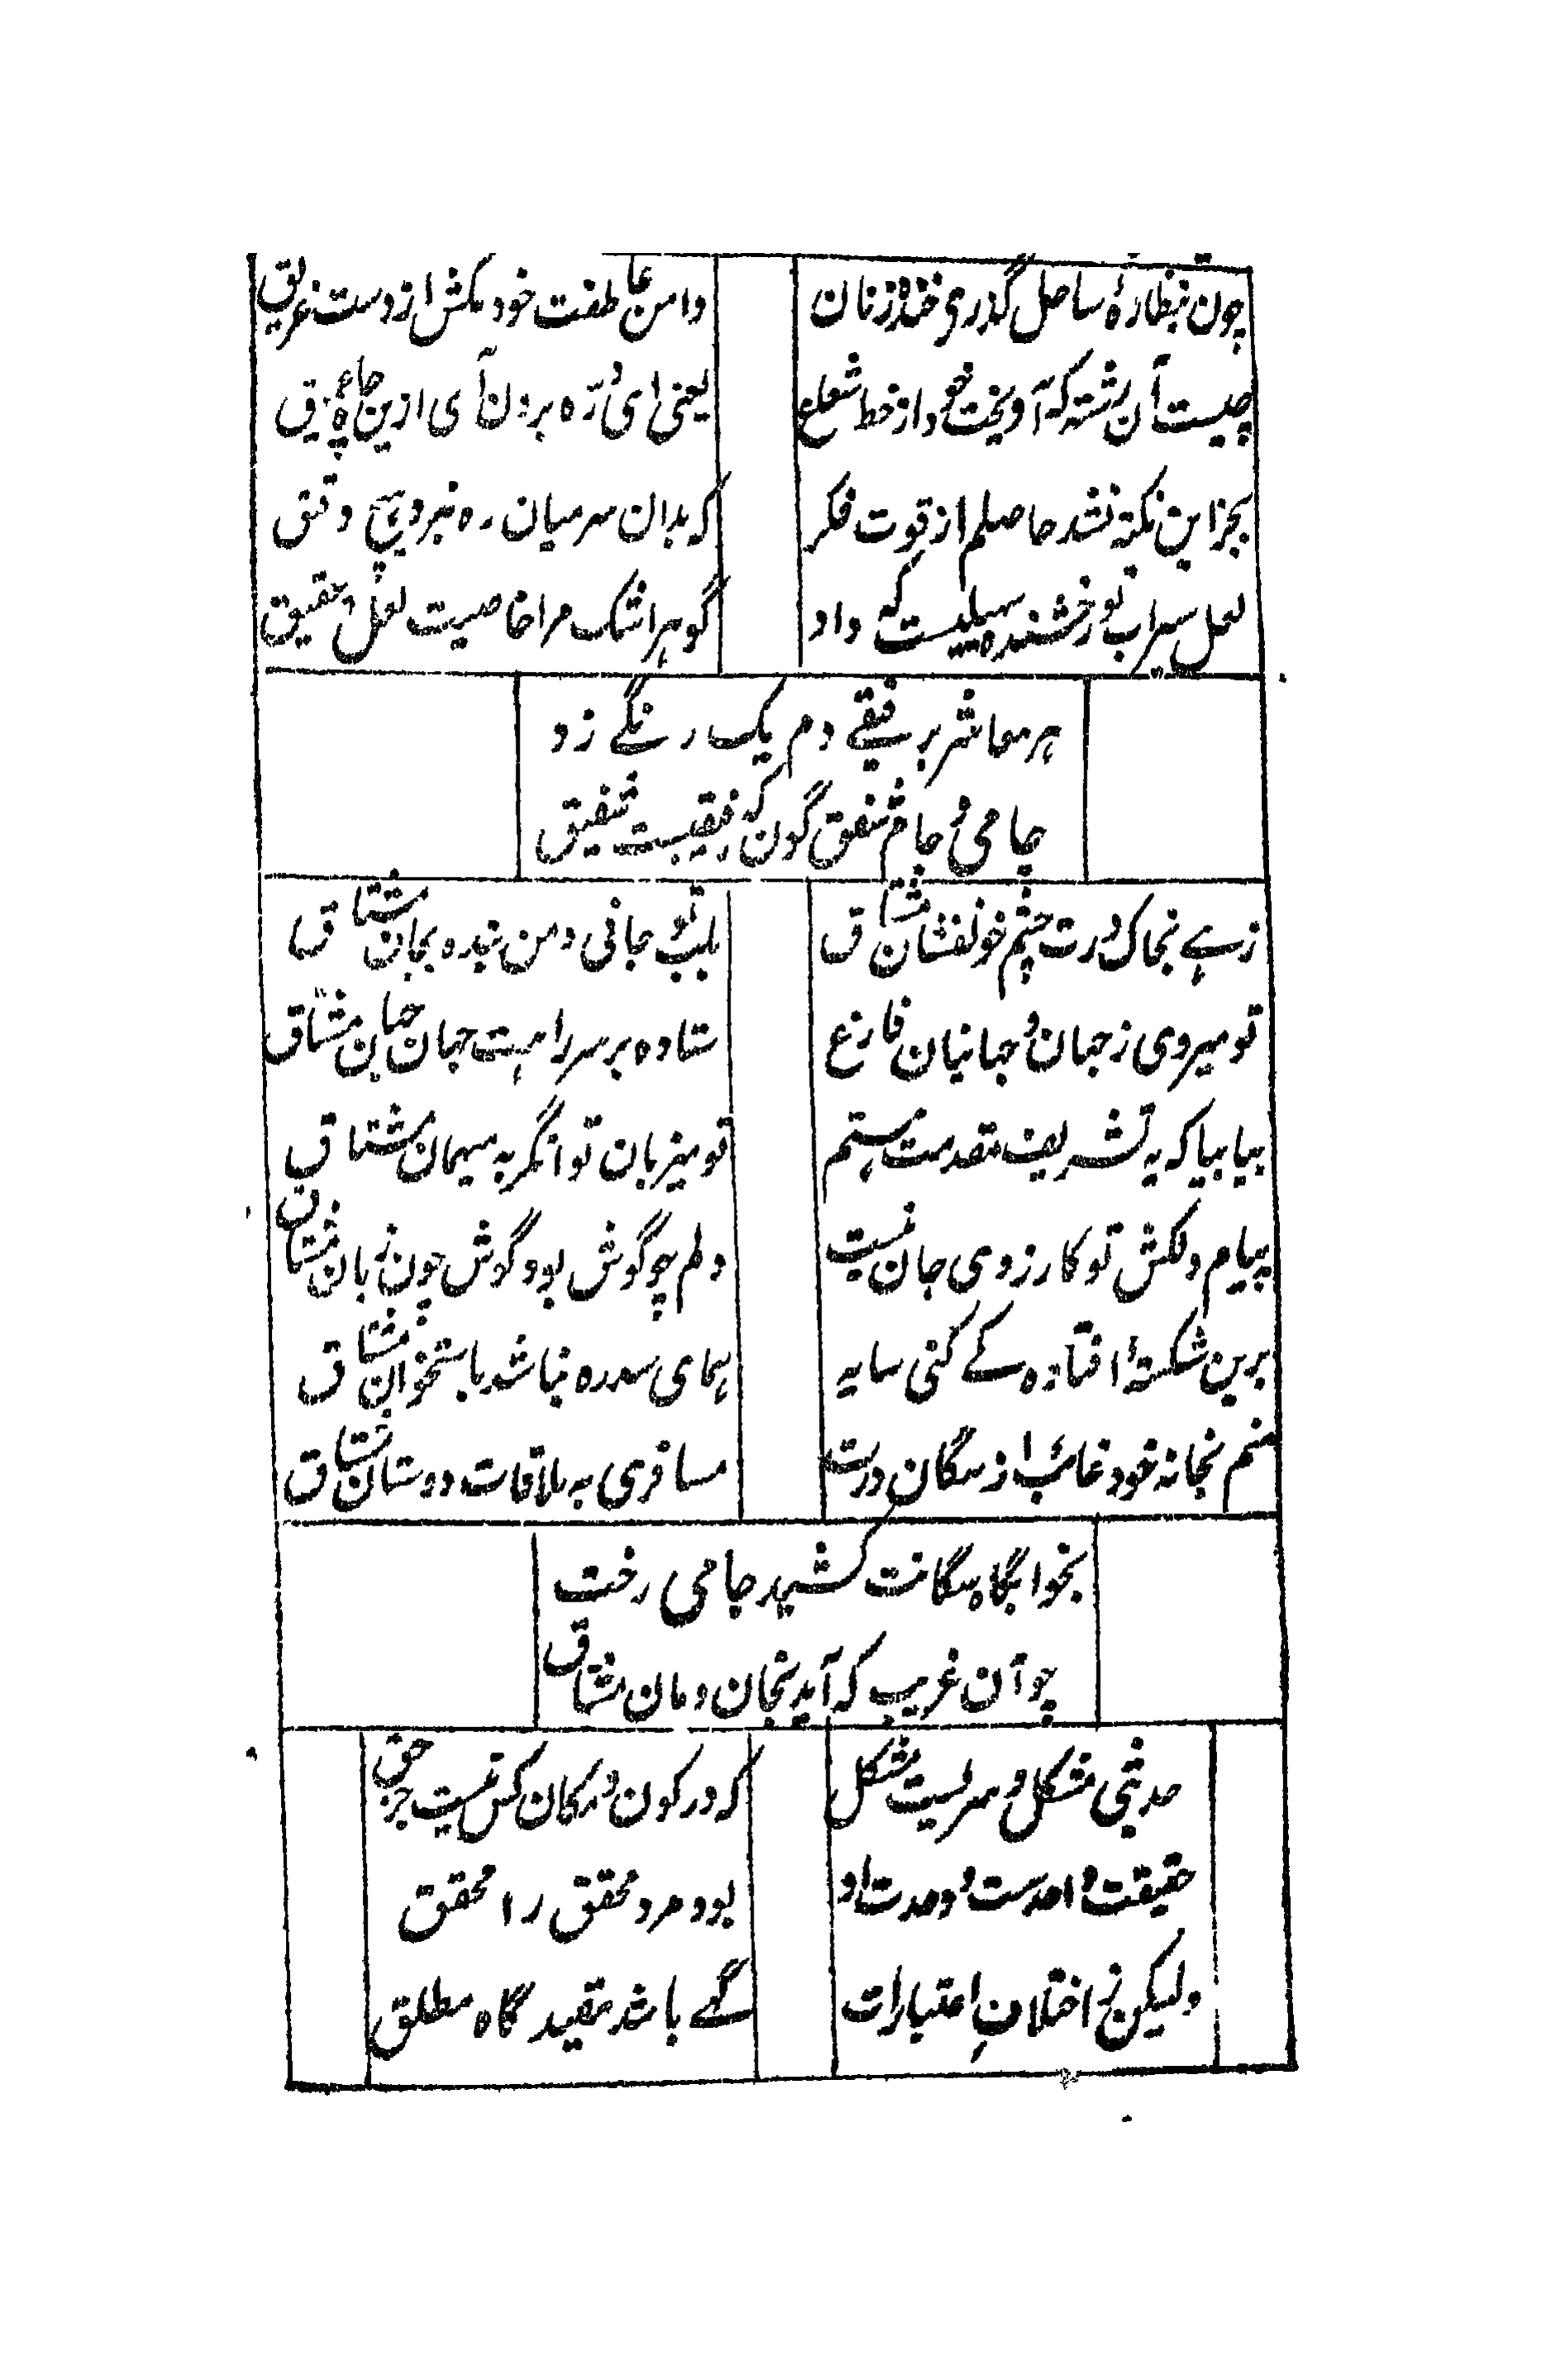 چون بنظارهٔ ساحل گذری خنده زنان
دامن عاطفت خود مکش از دست غریق
چیست آن رشته که آویخت خور از خط شعاع
یعنی ای ذره برون آی ازین چاه عمیق
بجز این نکته نشد حاصلم از قوت فکر
که بدان سر میان ره نبرد هیچ دقیق
لعل سیراب تو رخشنده سهیلیست که داد
گوهر اشک مرا خاصیت لعل و عقیق
هر معاشر برفیقے دم یک رنگے زد
جامی و جام شفق گون که رفیقیست شفیق
زہے بخاک درت چشم خونفشان مشتاق
بلب تو جانی و من بنده بجان مشتاق
تو میروی ز جهان و جهانیان فارغ
ستاده بر سر راهت جهان جهان مشتاق
بیا بیا که به تشریف مقدمت هستم
تو میزبان توانگر به میهمان مشتاق
پیام دلکش تو کارزوی جان منست
دلم چو گوش بود گوش چون زبان مشتاق
برین شکستهٔ افتاده کے کنی سایه
همای سدره نباشد باستخوان مشتاق
منم بخانه خود غائب از سگان درت
مسافری به ملاقات دوستان مشتاق
بخوابگاه سگانت کشید جامی رخت
چو آن غریب که آید بخان و مان مشتاق
حدیثی مشکل و سریست مشکل
که در کون و مکان کس نیست جز حق
حقیقت واحدست و وحدت او
بود مرد محقق را محقق
ولیکن ز اختلافِ اعتبارات
گہے باشد مقید گاه مطلق